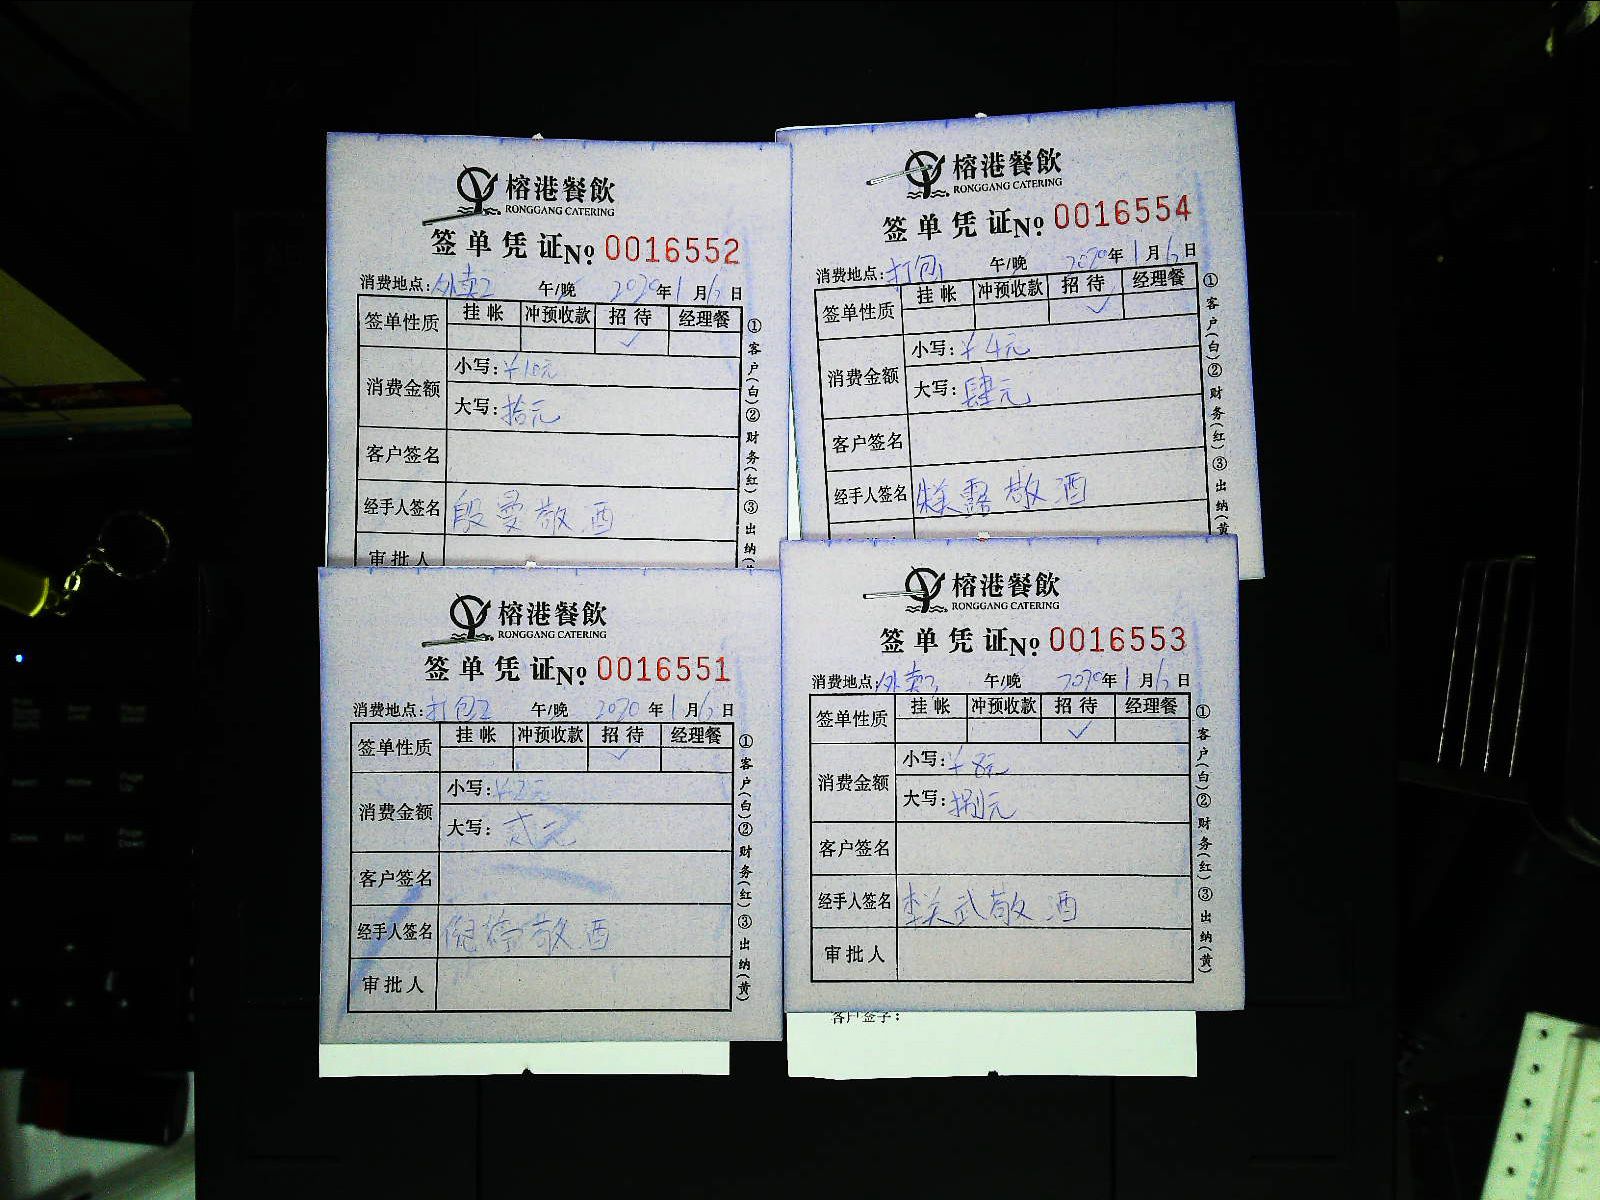 榕港餐飲
RONGGANG CATERING
签单凭证No 0016552
消费地点:外卖2 午/晚 2020年1月6日
签单性质 挂帐 冲预收款 招待 经理餐
✓
消费金额
小写:¥10元
大写:拾元
客户签名
经手人签名 段曼敬酒
审批人
①客户(白)②财务(红)③出纳(
榕港餐飲
RONGGANG CATERING
签单凭证No 0016554
消费地点:打包1 午/晚 2020年1月6日
签单性质 挂帐 冲预收款 招待 经理餐
✓
消费金额
小写:¥4元
大写:肆元
客户签名
经手人签名 露敬酒
①客户(白)②财务(红)③出纳(黄
榕港餐飲
RONGGANG CATERING
签单凭证No 0016551
消费地点:打包2 午/晚 2020年1月6日
签单性质 挂帐 冲预收款 招待 经理餐
✓
消费金额
小写:¥2元
大写:贰元
客户签名
经手人签名 倪婷敬酒
审批人
①客户(白)②财务(红)③出纳(黄)
榕港餐飲
RONGGANG CATERING
签单凭证No 0016553
消费地点:外卖2 午/晚 2020年1月6日
签单性质 挂帐 冲预收款 招待 经理餐
✓
消费金额
小写:¥8元
大写:捌元
客户签名
经手人签名 武敬酒
审批人
①客户(白)②财务(红)③出纳(黄)
客户签字: